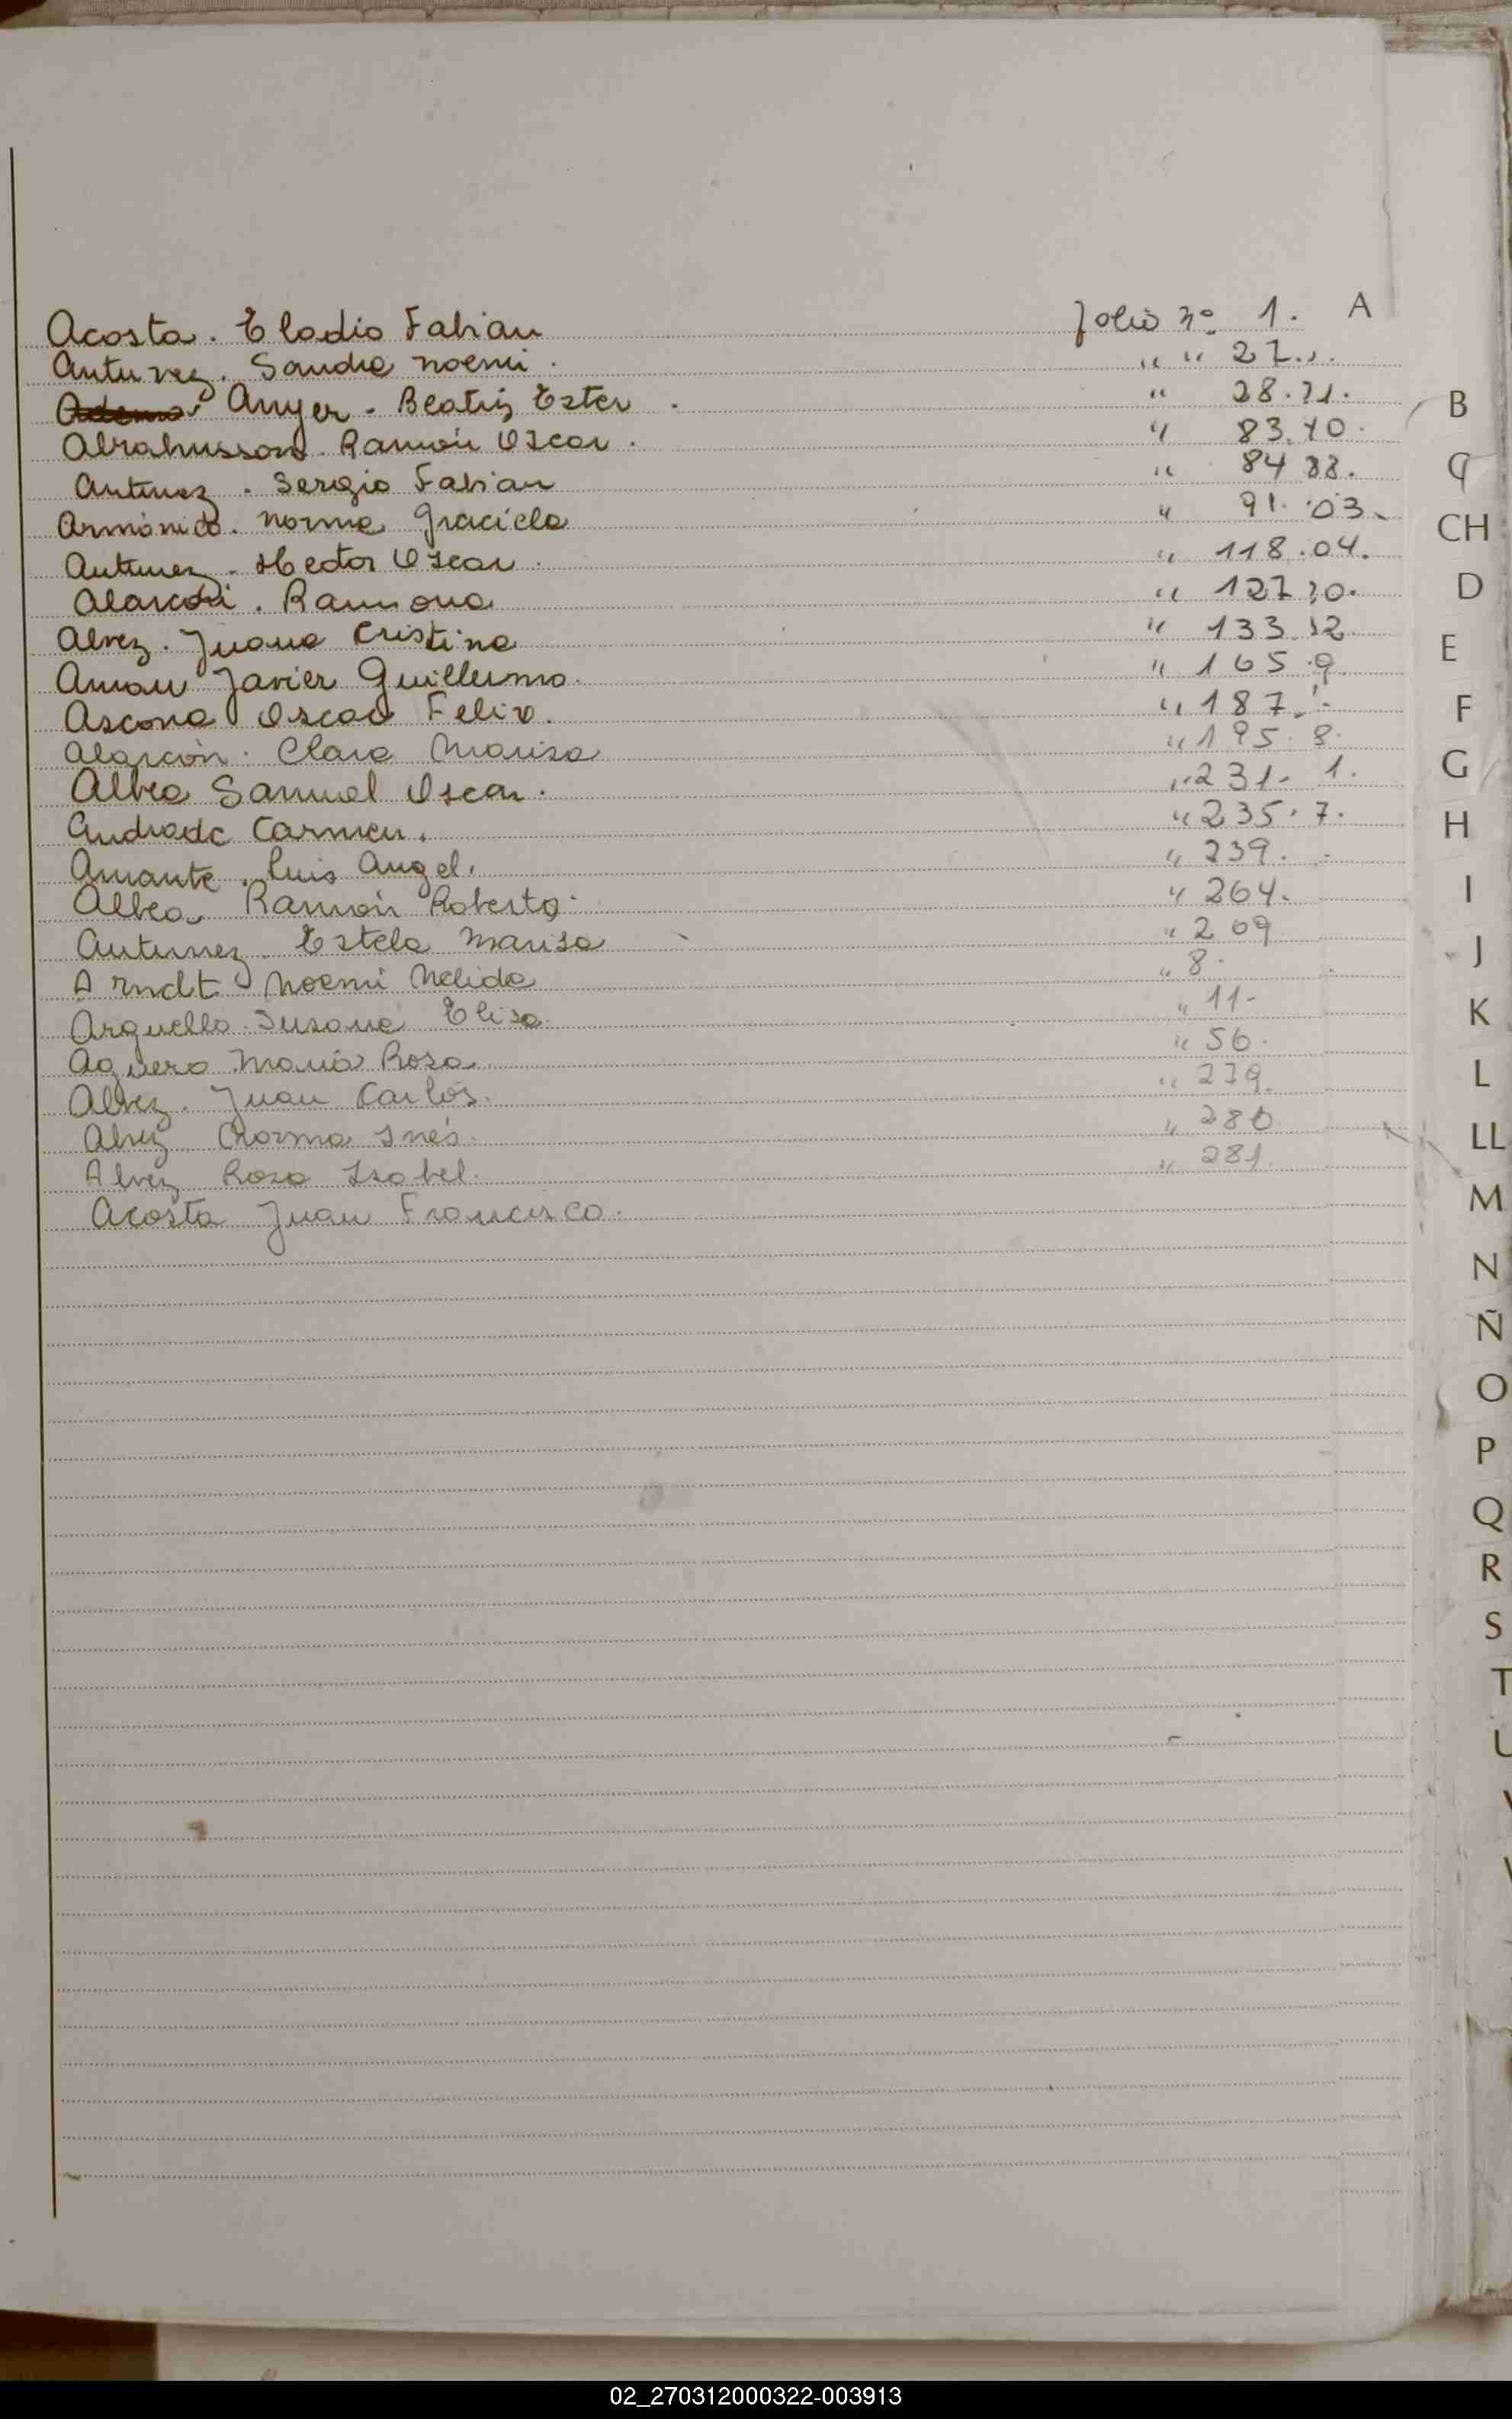 Acosta. Eladio Fabian folio nº 1. A
Antunez. Sandra Noemi. " " 27.
Anger - Beatriz Ester. " 28.
Abrahnsson. Ramón Oscar. " 83.
Antunez. Sergio Fabian " 84
Armónico. Norma Graciela " 91.
Antunez. Hector Oscar. " 118.
Alarcón. Ramona " 127
Alvez. Juana Cristina " 133.
Aman Javier Guillermo. " 165
Ascona Oscar Felix. " 187.
Alarcón. Clara Marisa " 195.
Albea Samuel Oscar. " 231.
Andrade Carmen. " 235.
Amante. Luis Angel. " 239.
Albea, Ramón Roberto. " 264.
Antunez. Estela Marisa " 209
Arndt Noemi Nelida " 8.
Arguello. Susana Elisa. " 11-
Aguero María Rosa. " 56.
Alvez. Juan Carlos. " 279.
Alvez Norma Inés. " 280.
Alvez Rosa Isabel. " 281.
Acosta Juan Francisco.
B
C
CH
D
E
F
G
H
I
J
K
L
LL
M
N
Ñ
O
P
Q
R
S
T
U
02_270312000322-003913